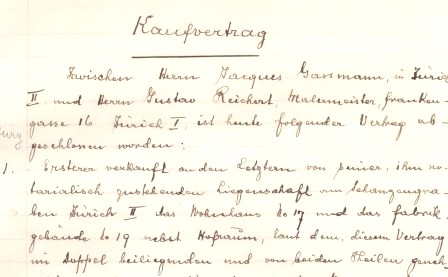 Kaufvertrag
Zwischen Herrn Jacques Gassmann, in Zürich
II, und Herrn Gustav Reichert, Malermeister, Franken-
gasse 16 Zürich I, ist heute folgender Vertrag ab-
geschlossen worden:
1. Ersterer verkauft an den Letztern von seiner, ihm no-
tarialisch zustehenden Liegenschaft am Schanzengra-
ben Zürich II das Wohnhaus No 17 und das Fabrik-
gebäude No 19 nebst Hofraum, laut dem, diesem Vertrag
im Doppel beiliegenden und von beiden Theilen